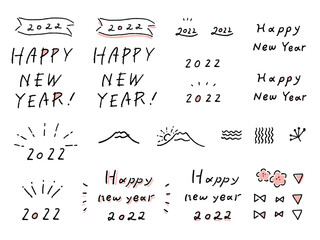 2022
HAPPY
NEW
YEAR!
2022
HAPPY
NEW
YEAR!
2022 2022
2022
2022
Happy
New Year
Happy
New Year
2022
2022
Happy
new year
2022
Happy
new year
2022